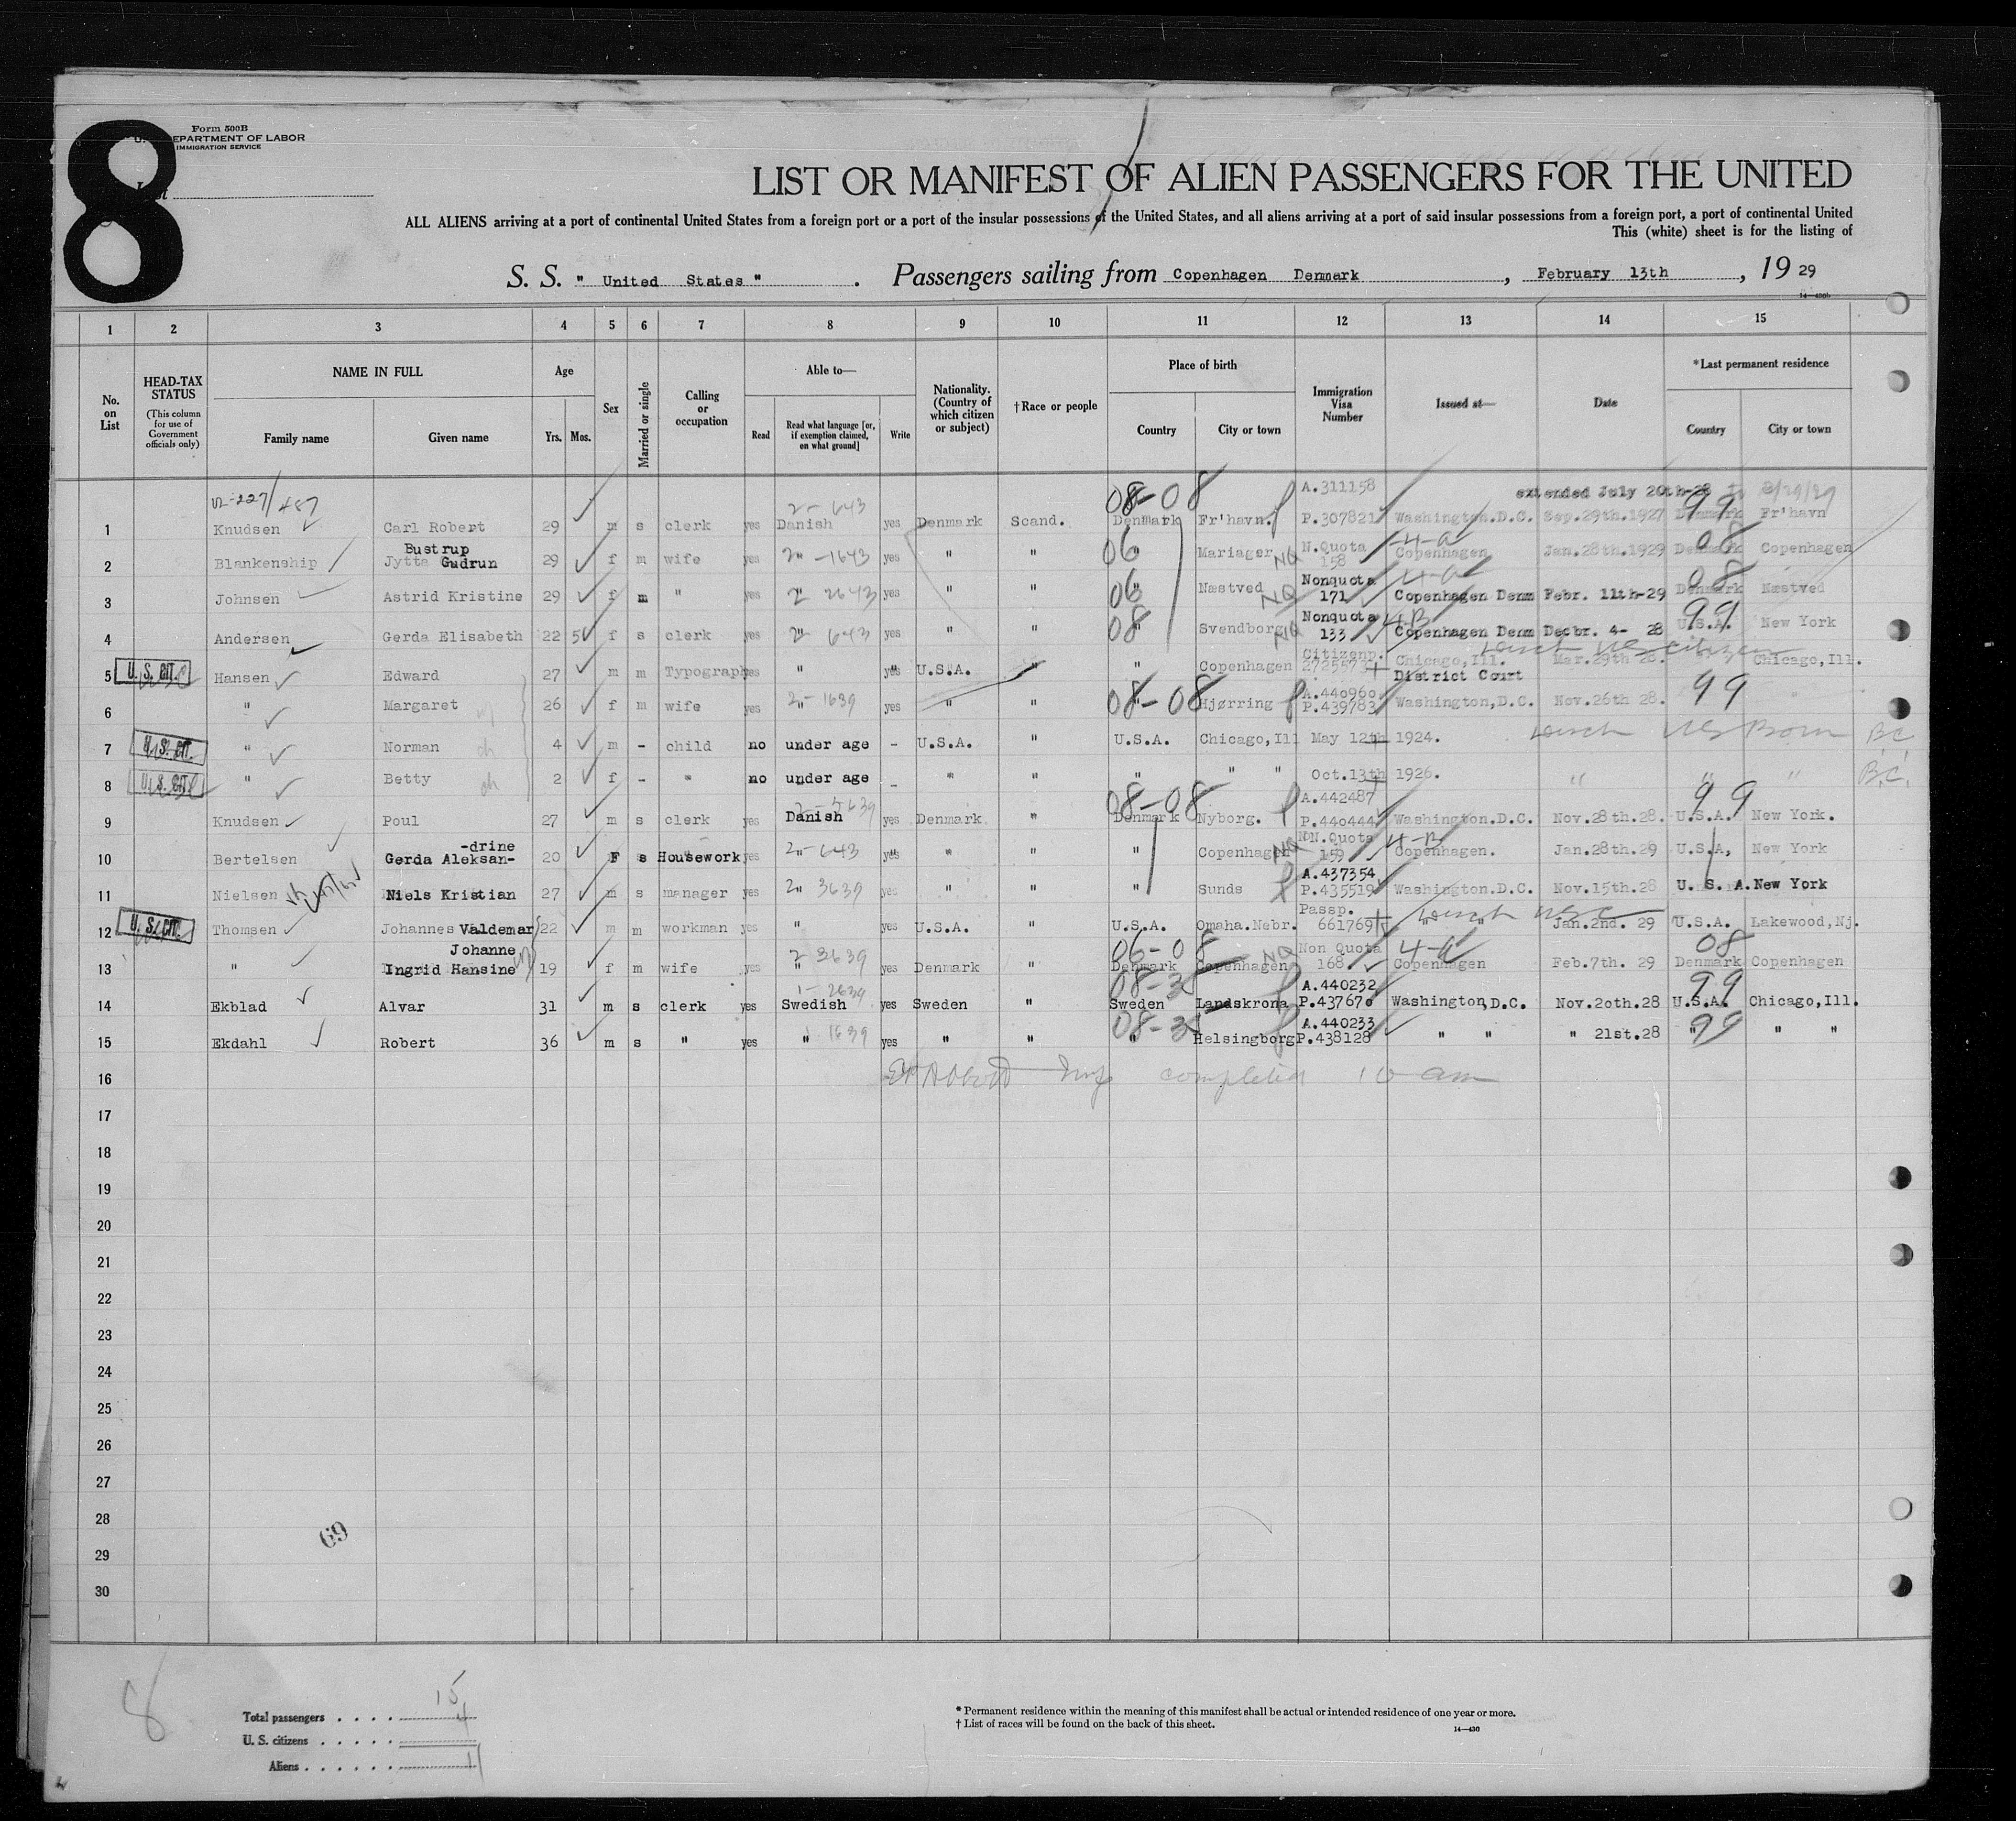 8
Form 500B
U. S. DEPARTMENT OF LABOR
IMMIGRATION SERVICE
List
LIST OR MANIFEST OF ALIEN PASSENGERS FOR THE UNITED
ALL ALIENS arriving at a port of continental United States from a foreign port or a port of the insular possessions of the United States, and all aliens arriving at a port of said insular possessions from a foreign port, a port of continental United
This (white) sheet is for the listing of
S. S. " United States " . Passengers sailing from Copenhagen Denmark , February 13th , 19 29
1 2 3 4 5 6 7 8 9 10 11 12 13 14 15
No. on List
HEAD-TAX STATUS
(This column for use of Government officials only)
NAME IN FULL
Family name Given name
Age
Yrs. Mos.
Sex
Married or single
Calling or occupation
Able to—
Read Read what language [or, if exemption claimed, on what ground] Write
Nationality. (Country of which citizen or subject)
†Race or people
Place of birth
Country City or town
Immigration Visa Number
Issued at—
Date
*Last permanent residence
Country City or town
A.311158 extended July 20th-28 to 2/29/29
2-643 08-08 99
1 Knudsen Carl Robert 29 m s clerk yes Danish yes Denmark Scand. Denmark Fr'havn. P.307821 Washington.D.C. Sep.29th.1927 Denmark Fr'havn
Bustrup 06 N.Quota 4-a 08
2 Blankenship Jytta Gudrun 29 f m wife yes " 2-1643 yes " " " Mariager NQ 158 Copenhagen Jan.28th.1929 Denmark Copenhagen
06 Nonquota 4-a 08
3 Johnsen Astrid Kristine 29 f m " yes " 2 2643 yes " " " Næstved NQ 171 Copenhagen Denm Febr. 11th-29 Denmark Næstved
08 Nonquota 4-B 99
4 Andersen Gerda Elisabeth 22 5 f s clerk yes " 2- 643 yes " " " Svendborg NQ 133 Copenhagen Denm Decbr. 4- 28 U.S.A. New York
Citizenp. US citizen
U. S. CIT.
5 Hansen Edward 27 m m Typograph yes " yes U.S.A. " " Copenhagen 2725573 Chicago,Ill. Mar.29th 28. Chicago,Ill.
District Court
08-08 A.440960 99
6 " Margaret 26 f m wife yes " 2-1639 yes " " " Hjørring P.439783 Washington,D.C. Nov.26th 28. "
U. S. CIT.
7 " Norman 4 m - child no under age - U.S.A. " U.S.A. Chicago,Ill May 12th 1924. US Born B.C.
U. S. CIT.
8 " Betty 2 f - " no under age - " " " " " Oct.13th 1926. " " " B.C.
08-08 A.442487 99
9 Knudsen Poul 27 m s clerk yes Danish yes Denmark " Denmark Nyborg. P.440444 Washington.D.C. Nov.28th.28. U.S.A. New York.
-drine 2-643 Non.Quota 4-B
10 Bertelsen Gerda Aleksan- 20 F s Housework yes " yes " " " Copenhagen NQ 159 Copenhagen. Jan.28th.29 U.S.A, New York
A.437354
11 Nielsen Niels Kristian 27 m s manager yes " 2 3639 yes " " " Sunds P.435519 Washington.D.C. Nov.15th.28 U. S. A. New York
Passp.
U. S. CIT.
12 Thomsen Johannes Valdemar 22 m m workman yes " yes U.S.A. " U.S.A. Omaha.Nebr. 661769 " " Jan.2nd. 29 U.S.A. Lakewood,Nj.
Johanne 2 3639 06-08 NQ Non Quota 4-a 08
13 " Ingrid Hansine 19 f m wife yes " yes Denmark " Denmark Copenhagen 168 Copenhagen Feb.7th. 29 Denmark Copenhagen
1-2639 A.440232 99
14 Ekblad Alvar 31 m s clerk yes Swedish yes Sweden " Sweden Landskrona P.437670 Washington,D.C. Nov.20th.28 U.S.A. Chicago,Ill.
A.440233 99
15 Ekdahl Robert 36 m s " yes " 1639 yes " " " Helsingborg P.438128 " " " 21st.28 " " "
16 completed 10 am
17
18
19
20
21
22
23
24
25
26
27
28
69
29
30
8
15
Total passengers . . . . 4
U. S. citizens . . . . .
Aliens . . . . . . 11
* Permanent residence within the meaning of this manifest shall be actual or intended residence of one year or more.
† List of races will be found on the back of this sheet. 14—430